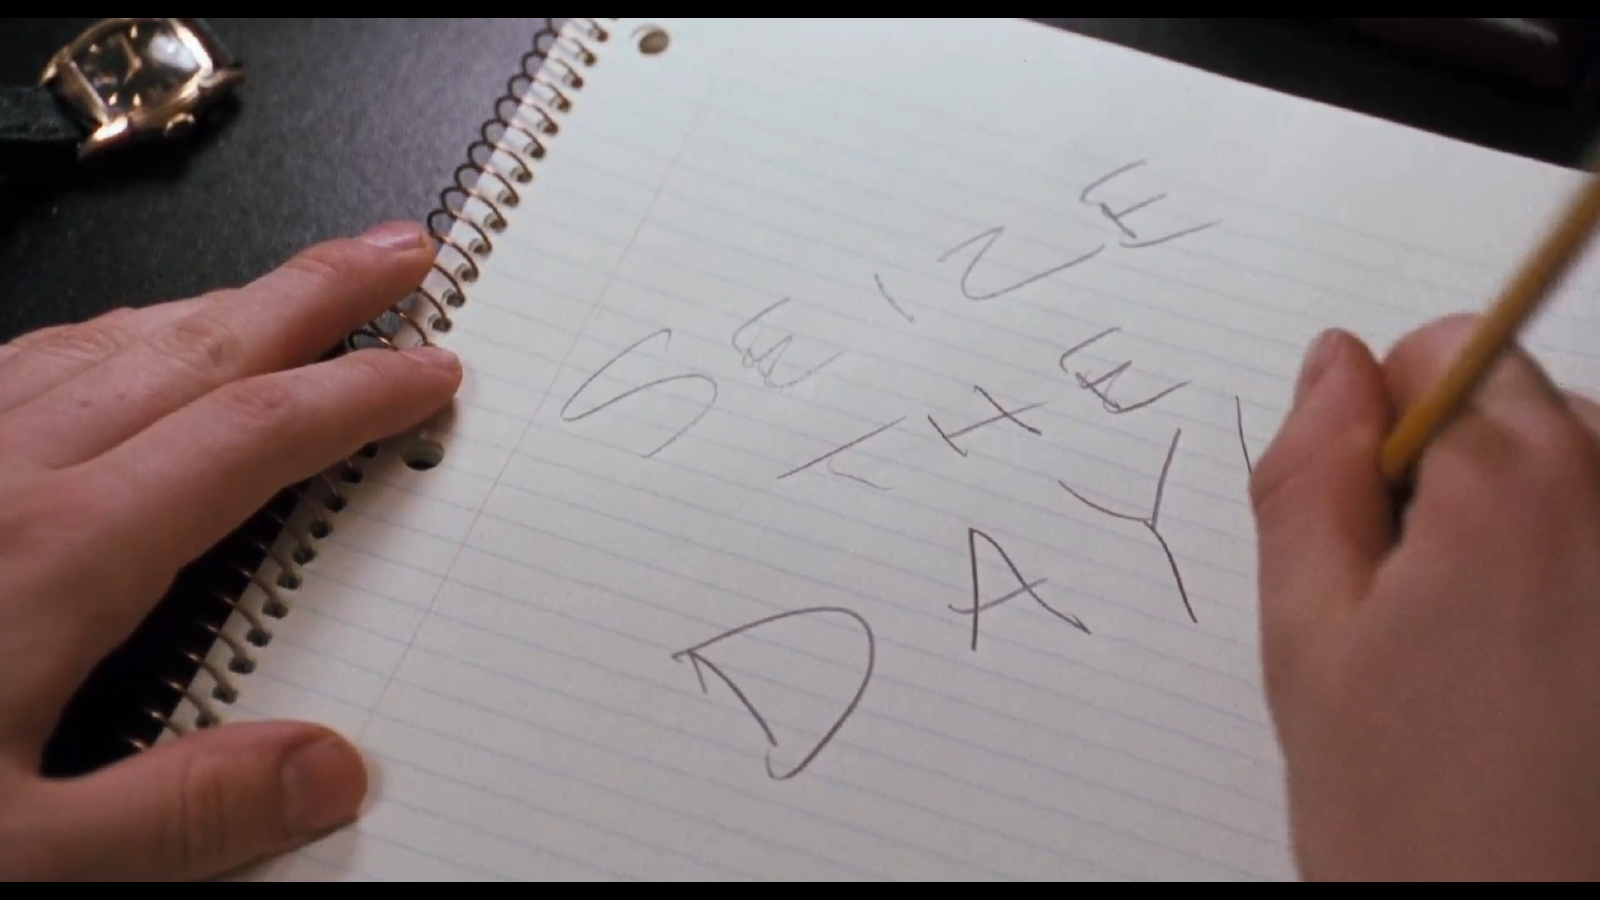 SEIZE
THE
DAY!